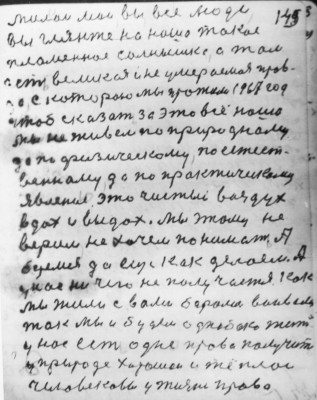 145
милои мои вы все люди
вы гляньте на наше такое
пламенное солнышко а там
ест великая и не умераемая прав-
да с которою мы прожили 1967 год
чтоб сказат за это всё наше
мы не живем по природному
да по физическому, по естест-
венному да по практическому
явление, это чистый воздух
вдох и выдох. Мы этому не
верим не хочем понимат, А
да как делаем. А
у нас ни чего не получаетя. Как
мы жили с вами
так мы и будем одинаково жить
у нас ест одне права получит
у природе хорошои и тёплое
человекови у жизни право